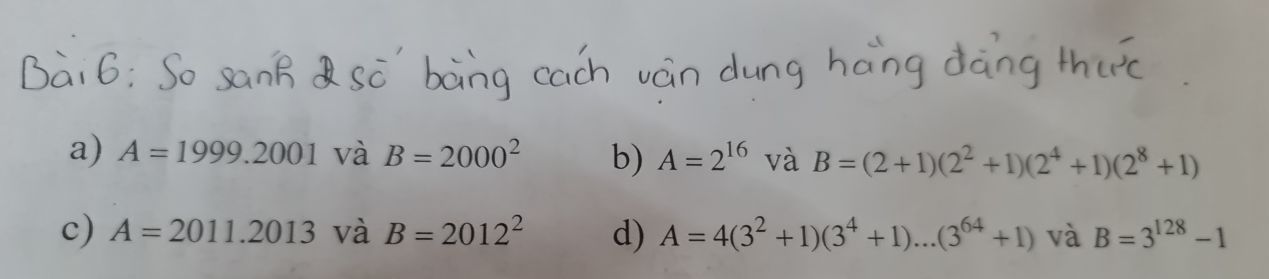 Bài 6: So sánh 2 số bằng cách vận dụng hằng đẳng thức.
a) A = 1999.2001 và B = 2000² b) A = 2¹⁶ và B = (2+1)(2²+1)(2⁴+1)(2⁸+1)
c) A = 2011.2013 và B = 2012² d) A = 4(3²+1)(3⁴+1)...(3⁶⁴+1) và B = 3¹²⁸ −1